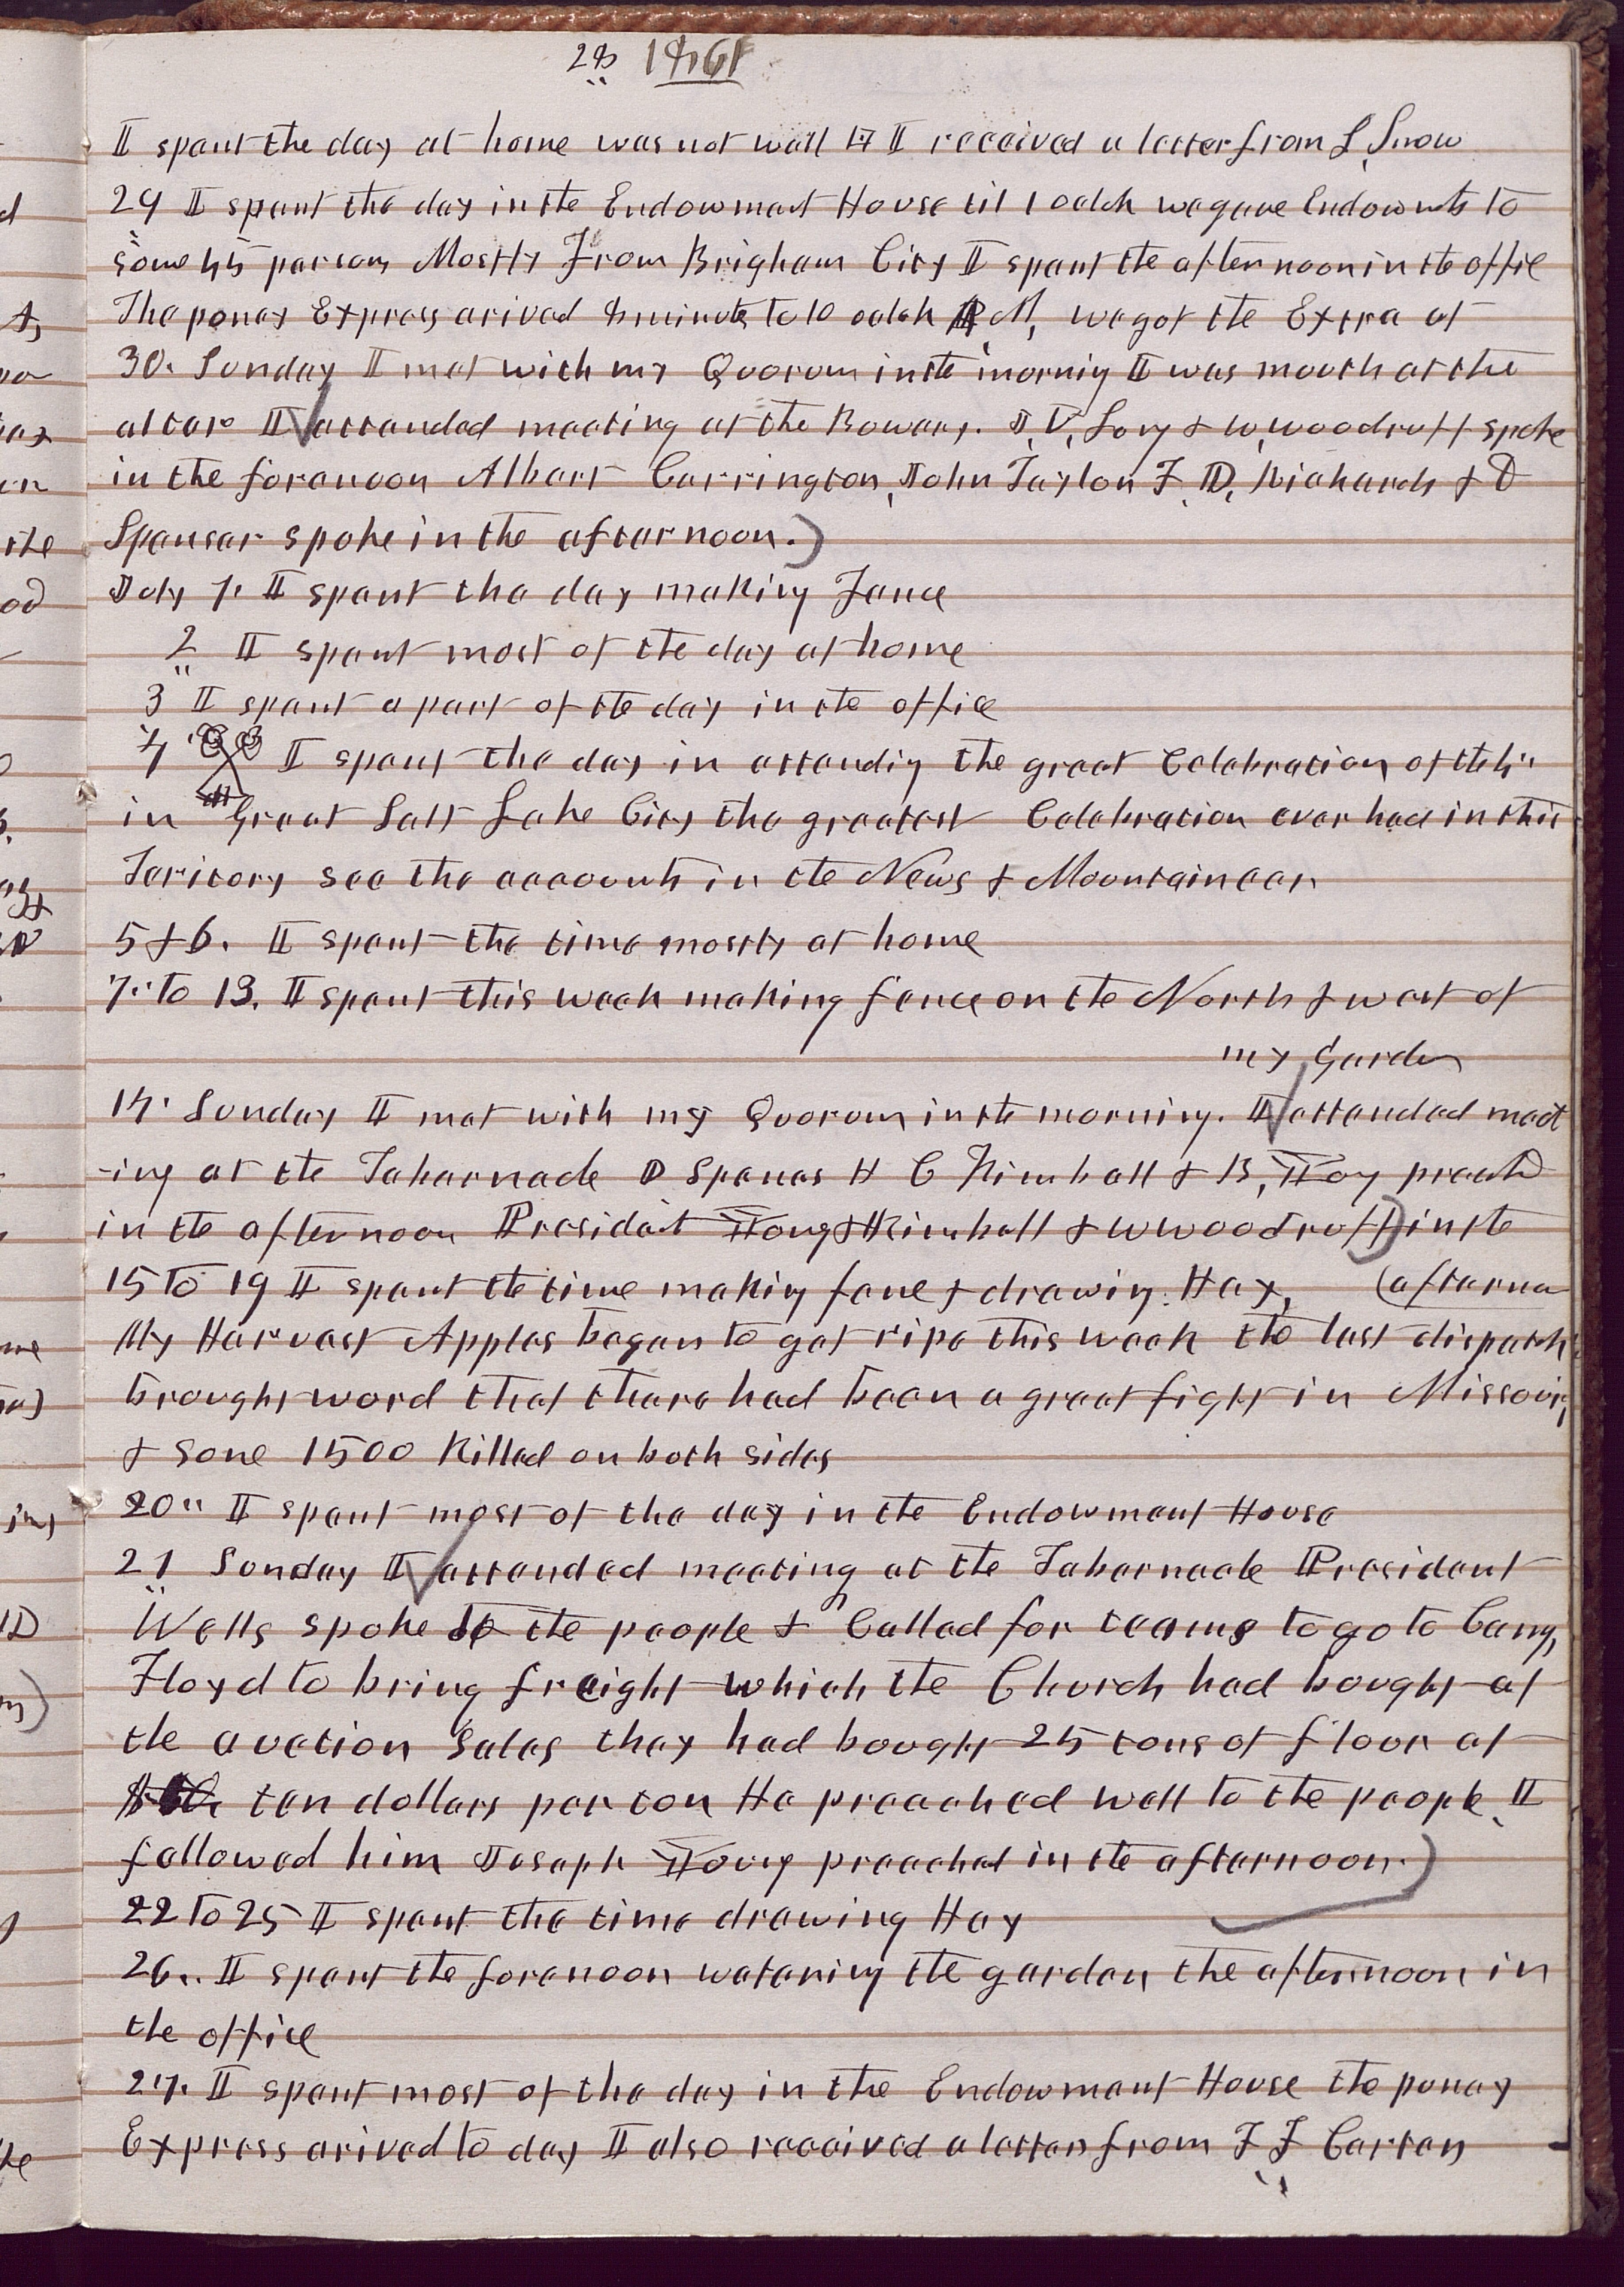 28 1861
I spent the day at home was not well I received a letter from L Snow
29 I spent the day in the Endowment House til 1 oclok we gave Endowmts to
some 45 persons Mostly From Brigham City I spent the afternoon in the offic
The poney Express arived 8 minuts to 10 oclok P M, we got the Extra at
30. Sunday I met with my Quorum in the morning I was mouth at the
altar I attended meeting at the Bowery. J. V. Long & W. Woodruff spoke
in the forenoon Albert Carrington, John Taylor F. D. Richards & D
Spencer spoke in the afternoon.)
July 1. I spent the day making Fence
2 I spent most of the day at home
3 I spent a part of the day in the office
4 I spent the day in attendig the great Celebration of the 4"
in Great Salt Lake City the greatest Celebration ever had in this
Teritory see the accounts in the News & Mountaineer
5 & 6. I spent the time mostly at home
7" to 13. I spent this week making fence on the North & west of
my Garden
14. Sunday I met with my Quorum in the morning. I attended meet
-ing at the Tabernacle D Spencer H C Kimball & B. Yong preachd
in the afternoon President Young & Kimball & W Woodruff) in the
15 to 19 I spent the time making fence & drawing Hay, (afternn
My Harvest Apples began to get ripe this week the last dispatch
brought word that there had been a great fight in Missouri,
& some 1500 Killed on both sides
20" I spent most of the day in the Endowment House
21 Sunday I attended meeting at the Tabernacle President
Wells spoke to the people & Called for teams to go to Camp
Floyd to bring freight which the Church had bought at
the auction Sales they had bought 25 tons of flour at
ten dollars per ton He preached well to the people I
followed him Joseph Young preached in the afternoon.)
22 to 25 I spent the time drawing Hay
26.. I spent the forenoon watering the garden the afternoon in
the office
27. I spent most of the day in the Endowment House the poney
Express arived to day I also received a letter from F F Carter